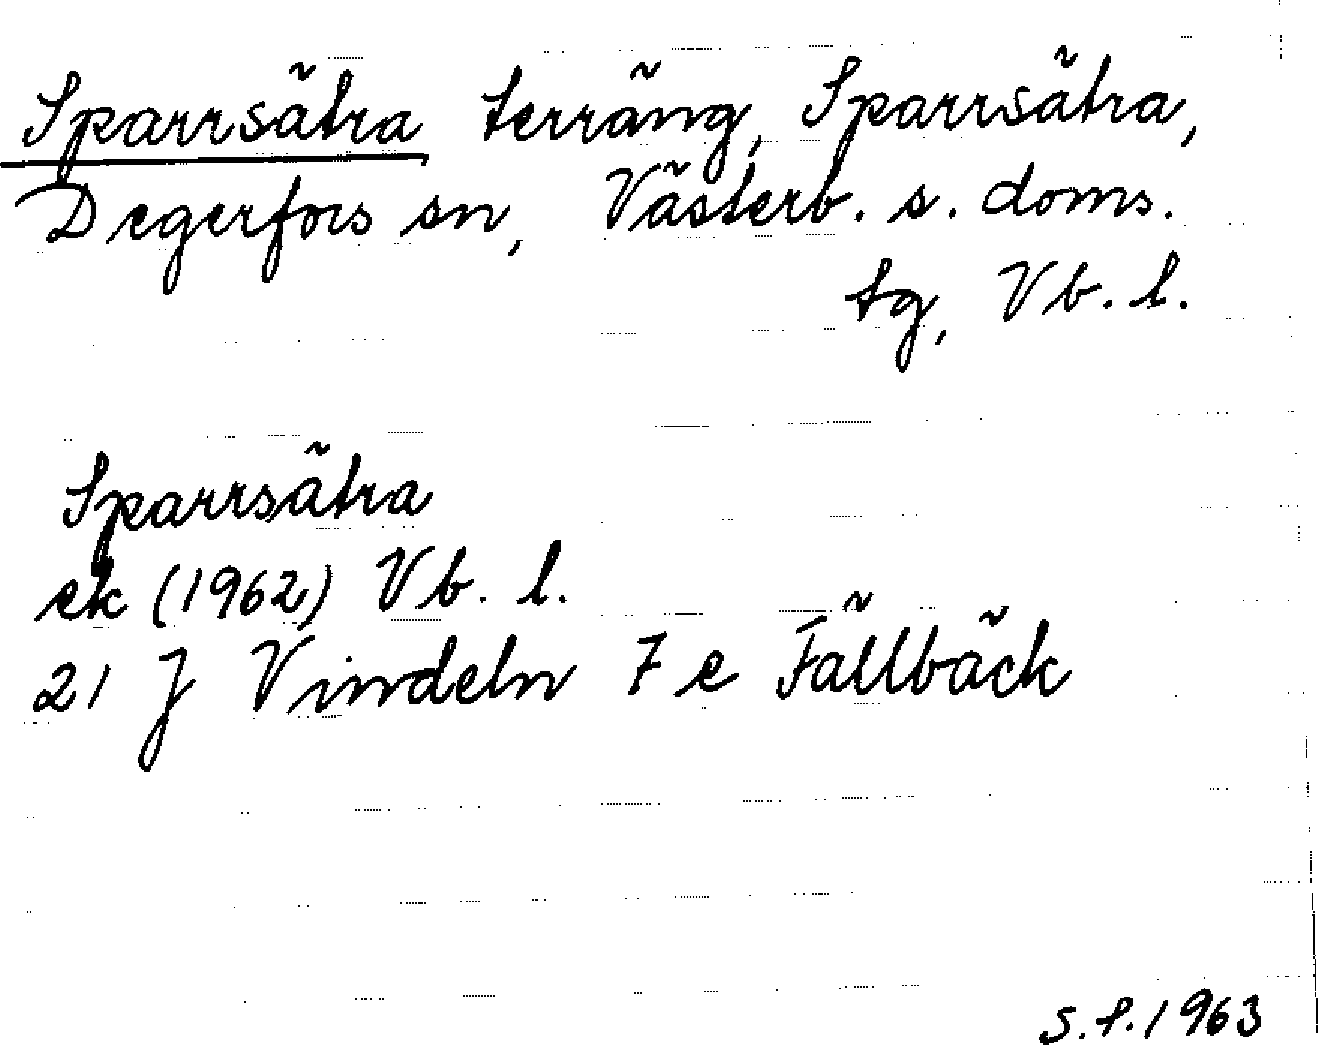 Sparrsätra terräng, Sparrsätra,
Degerfors sn, Västerb. s. doms.
tg, Vb. l.
Sparrsätra
ek (1962) Vb. l.
21 J Vindeln 7 e Fällbäck
S.P. 1963